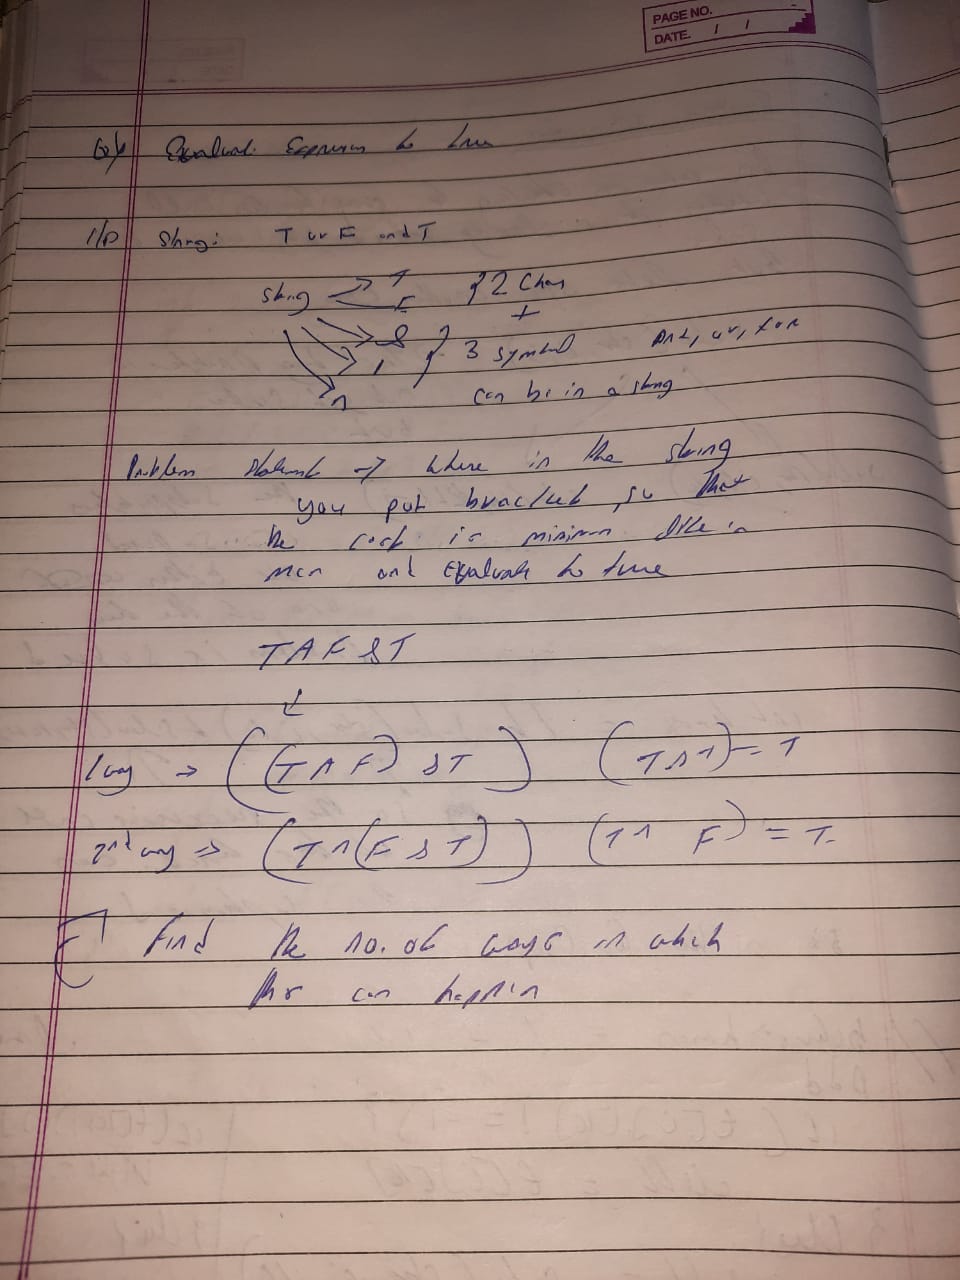 PAGE NO.
DATE. / /
Evaluate Expression to true
I/P String: T or F and T
string T } 2 Char
F +
& } 3 symbol And, or, xor
| can be in a string
^
Problem Statement → where in the string
you put bracket, so that
the cost is minimum like in
mcm and Evaluate to true
T ^ F & T
1 way → ((T ^ F) & T) (T & T) = T
2nd way → (T ^ (F & T)) (T ^ F) = T
Find the no. of ways in which
this can happen